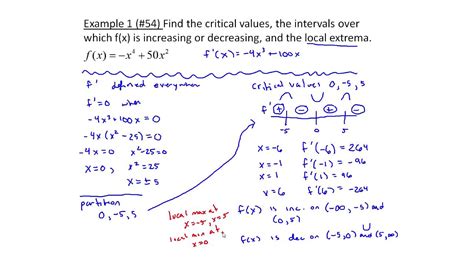 Example 1 (#54) Find the critical values, the intervals over
which f(x) is increasing or decreasing, and the local extrema.
f(x) = −x⁴ + 50x²
f'(x) = -4x³ + 100x
f' defined everywhere
f' = 0 when
-4x³ + 100x = 0
-4x (x² - 25) = 0
-4x = 0 x² - 25 = 0
x = 0, x² = 25
x = ± 5
partition
0, -5, 5
critical values 0, -5, 5
f' + - + -
-5 0 5
x = -6 f'(-6) = 264
x = -1 f'(-1) = -96
x = 1 f'(1) = 96
x = 6 f'(6) = -264
local max at
x = -5, x = 5
local min at
x = 0
f(x) is inc. on (-∞, -5) and
(0, 5)
f(x) is dec on (-5, 0) and (5, ∞)
∪